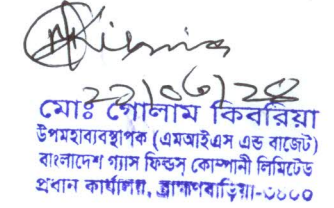 ২১/০৬/২৪
মোঃ গোলাম কিবরিয়া
উপমহাব্যবস্থাপক (এমআইএস এন্ড বাজেট)
বাংলাদেশ গ্যাস ফিল্ডস্ কোম্পানী লিমিটেড
প্রধান কার্যালয়, ব্রাহ্মণবাড়িয়া-৩৪০০